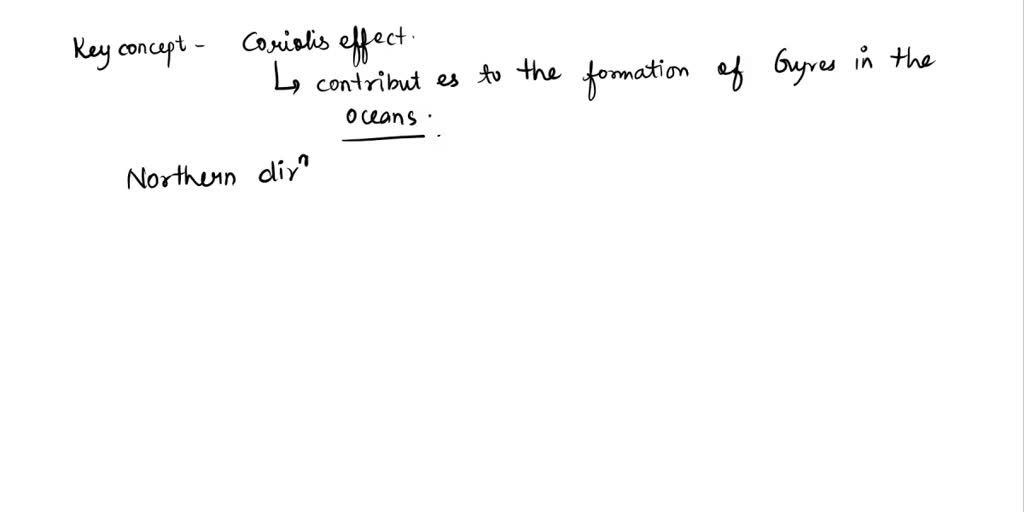 Key concept - Coriolis effect.
↳ contribut es to the formation of Gyres in the
oceans.
Northern dirⁿ